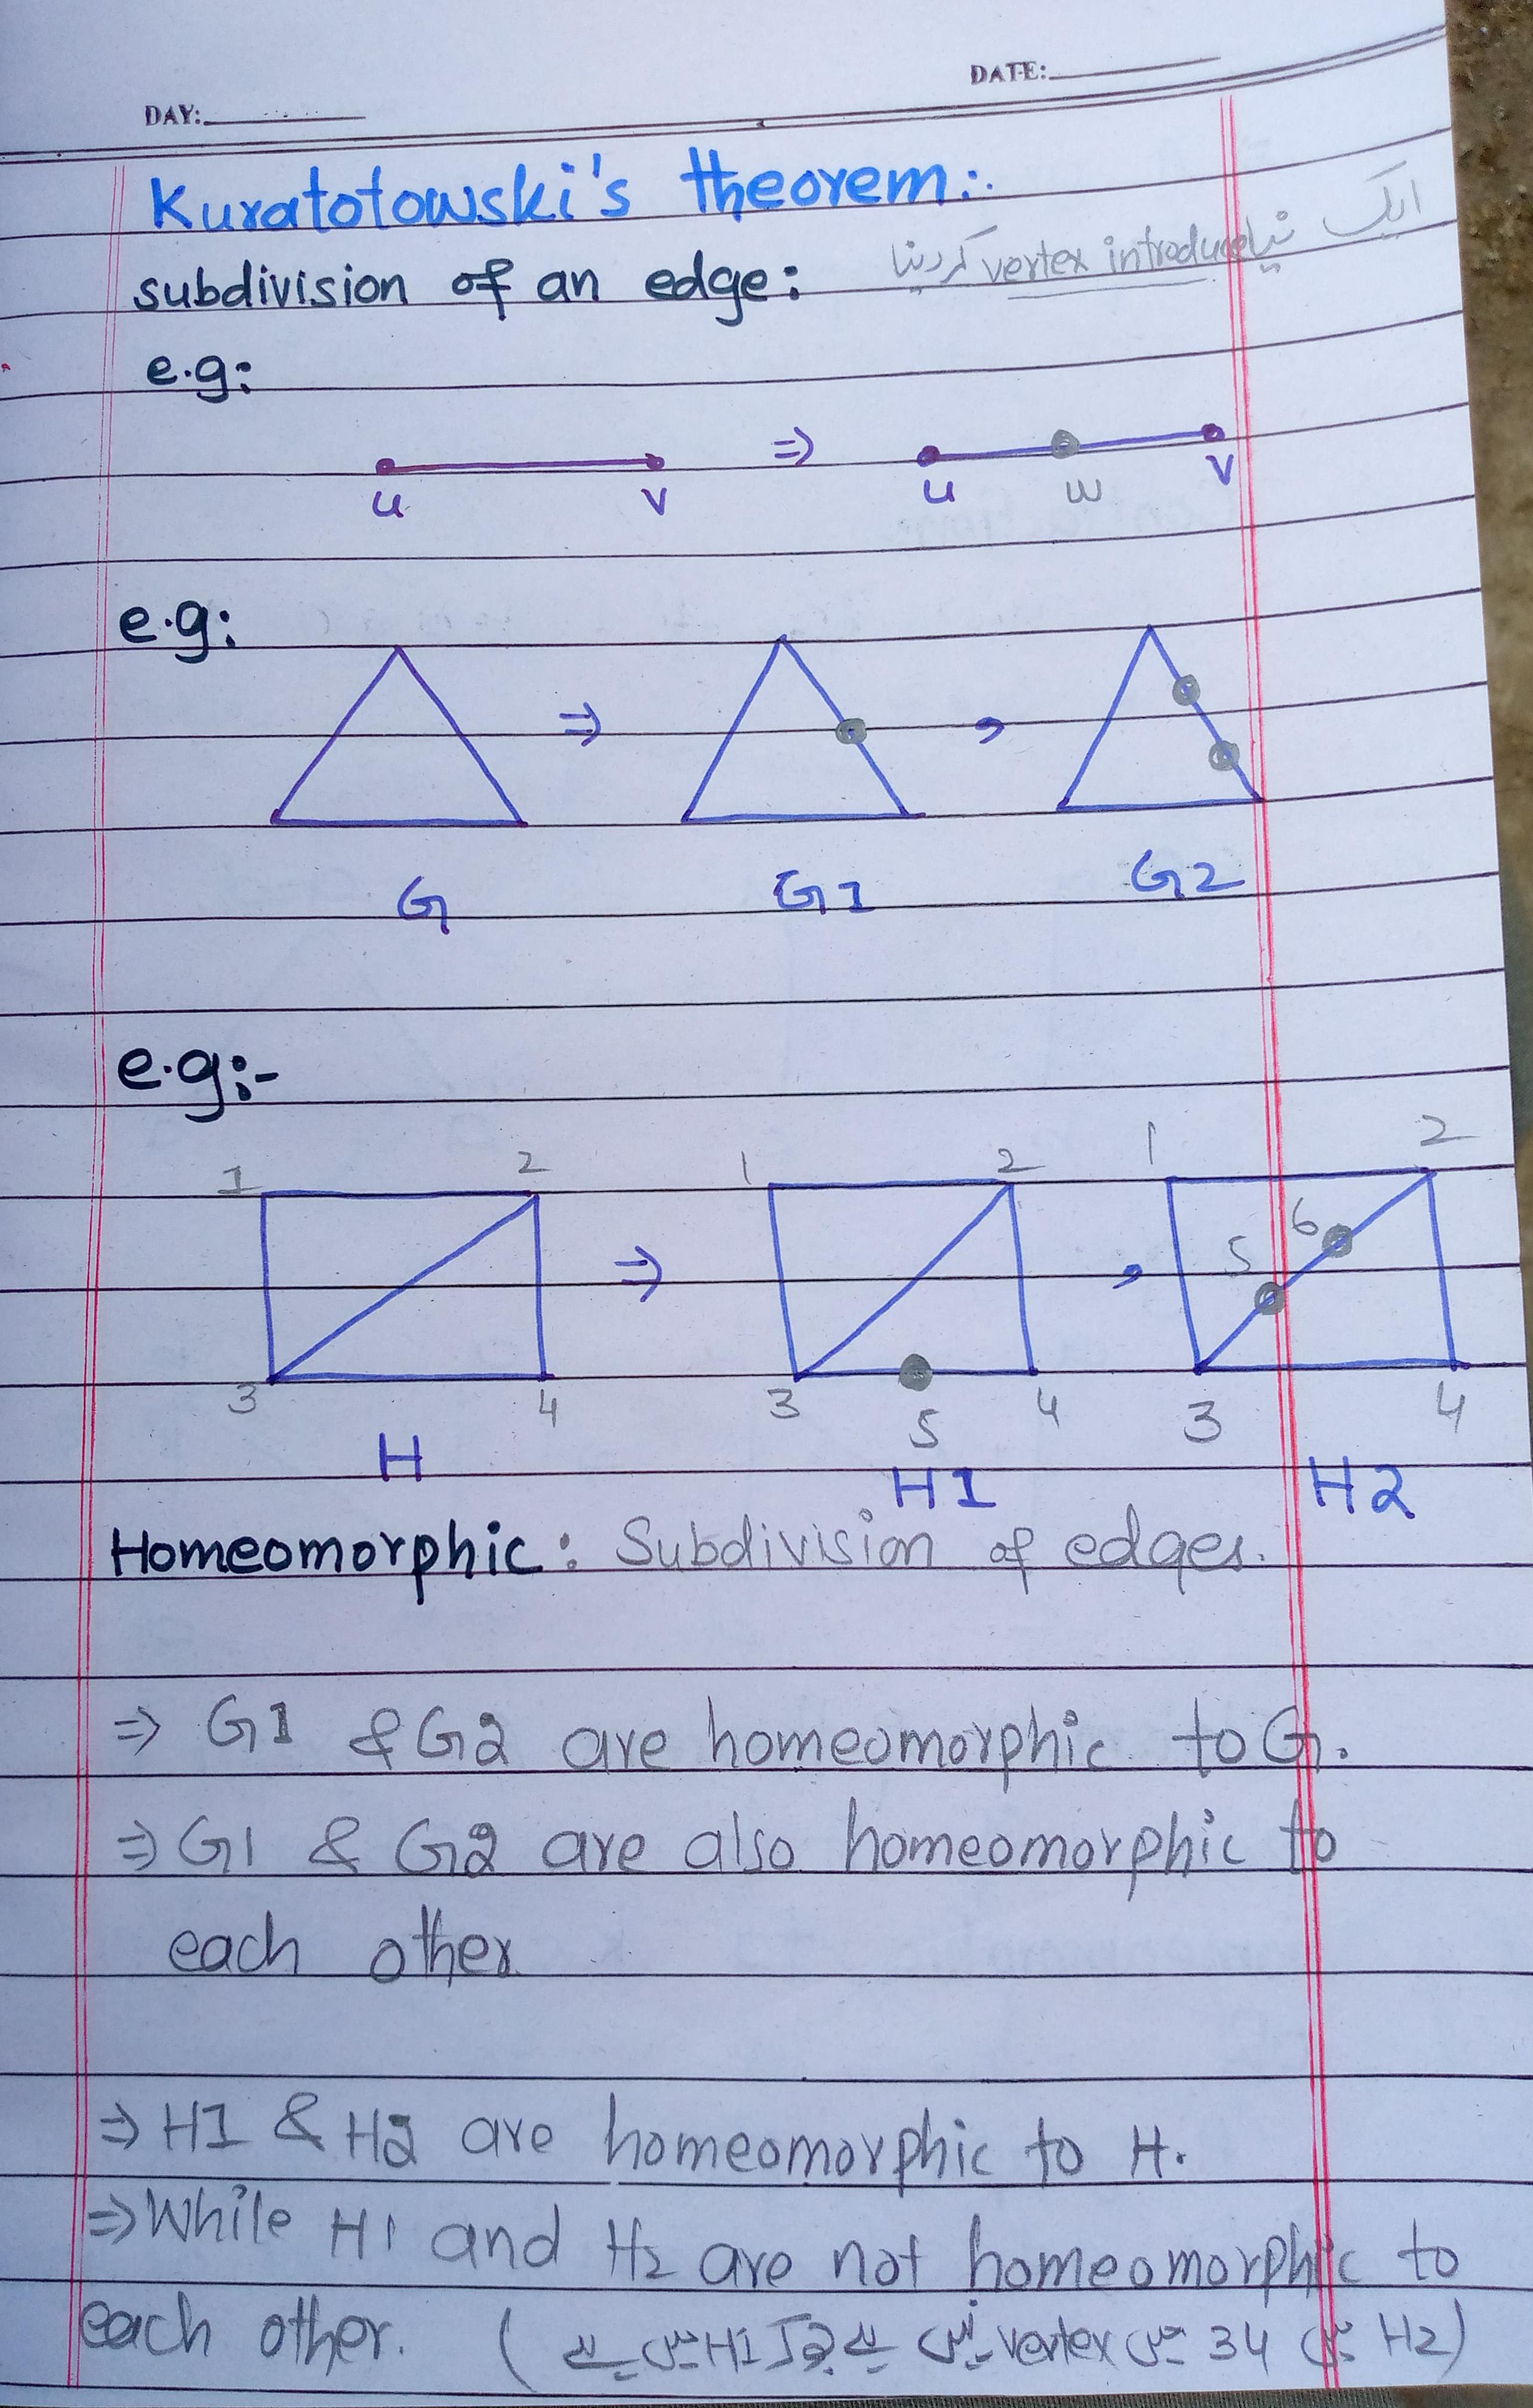 DAY:
DATE:
Kuratotowski's theorem:.
subdivision of an edge: ایک نیا vertex introduce کر دینا
e.g:
⇒
u v u w v
e.g:
⇒ ,
G G1 G2
e.g:-
1 2 1 2 1 2
⇒ , 5 6
3 4 3 5 4 3 4
H H1 H2
Homeomorphic: Subdivision of edges.
⇒ G1 & G2 are homeomorphic to G.
⇒ G1 & G2 are also homeomorphic to
each other
⇒ H1 & H2 are homeomorphic to H.
⇒ While H1 and H2 are not homeomorphic to
each other. (H2 میں 34 میں vertex نہیں ہے جبکہ H1 میں ہے)